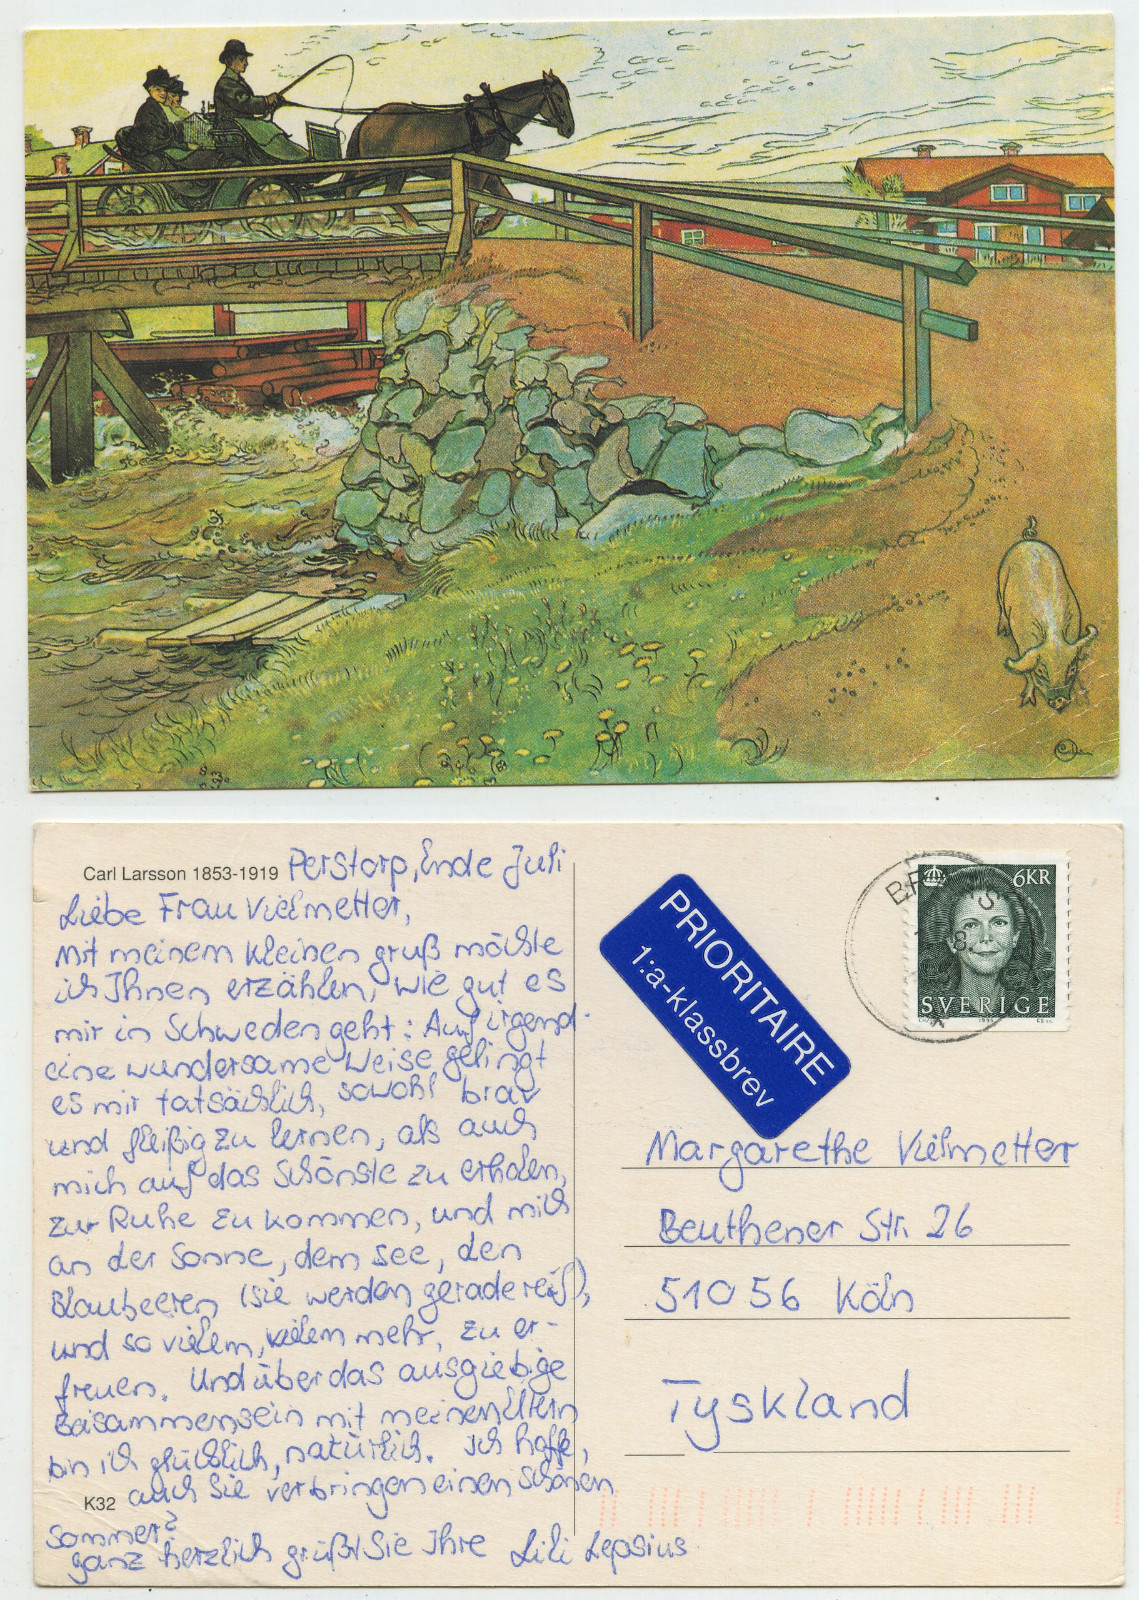 Carl Larsson 1853-1919
Perstorp, Ende Juli
Liebe Frau Vielmetter,
Mit meinem kleinen Gruß möchte
ich Ihnen erzählen, wie gut es
mir in Schweden geht: Auf irgend-
eine wundersame Weise gelingt
es mir tatsächlich, sowohl brav
und fleißig zu lernen, als auch
mich auf das Schönste zu erholen,
zur Ruhe zu kommen, und mich
an der Sonne, dem See, den
Blaubeeren (sie werden gerade reif),
und so vielem, vielem mehr, zu er-
freuen. Und über das ausgiebige
Beisammensein mit meinen Eltern
bin ich glücklich, natürlich. Ich hoffe,
auch Sie verbringen einen schönen
Sommer?
Ganz herzlich grüßt Sie Ihre Lili Lepsius
K32
PRIORITAIRE
1:a-klassbrev
6KR
SVERIGE
Margarethe Vielmetter
Beuthener Str. 26
51056 Köln
Tyskland